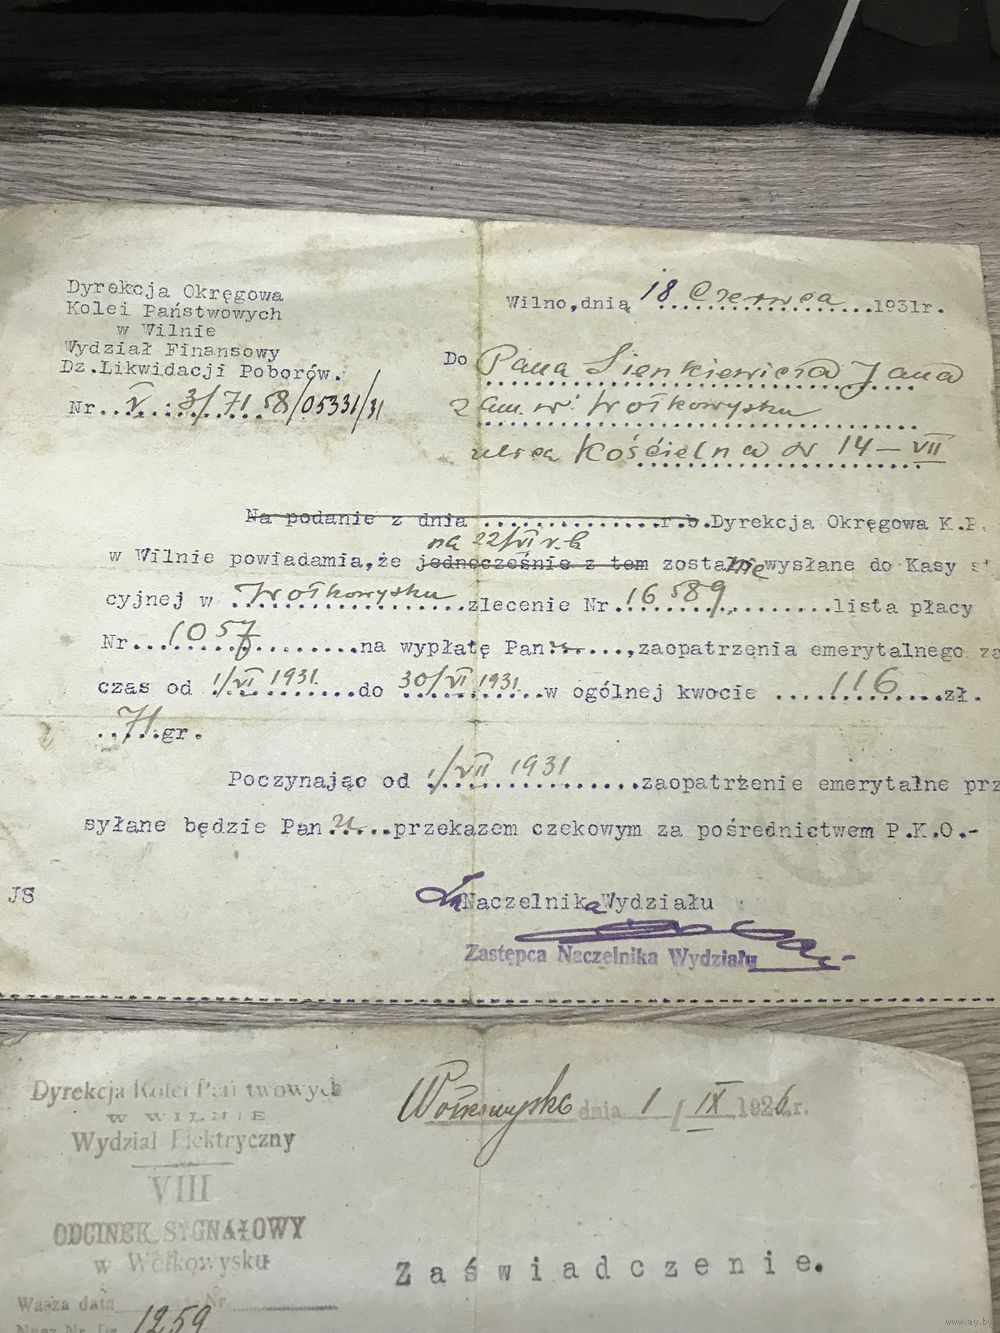 Dyrekcja Okręgowa
Kolei Państwowych
w Wilnie
Wydział Finansowy
Dz.Likwidacji Poborów.
Nr. V. 3/71 58/05331/31
Wilno,dnią 18 Czerwca 1931r.
Do Pana Sienkiewicza Jana
zam. w Wołkowysku
ulica Kościelna № 14 — VII
Na podanie z dnia ................r.b.Dyrekcja Okręgowa K.P.
na 22/VI r.b
w Wilnie powiadamia,że jednocześnie z tem zostanie wysłane do Kasy st
cyjnej w Wołkowysku zlecenie Nr. 16589 lista płacy
Nr. 1057 na wypłatę Panu,zaopatrzenia emerytalnego za
czas od 1/VI 1931 do 30/VI 1931 w ogólnej kwocie 116 zł.
71 gr.
Poczynając od 1/VII 1931 zaopatrżenie emerytalne prz
syłane będzie Panu przekazem czekowym za pośrednictwem P.K.O.-
JS
Naczelnika Wydziału
Zastępca Naczelnika Wydziału
Dyrekcja Kolei Państwowych
W WILNIE
Wydział Elektryczny
VIII
ODCINEK SYGNAŁOWY
w Wołkowysku
Wasza data Nr.
Nasz Nr. Dz. 1259
Wołkowysk dnia 1/IX 1926 r.
Zaświadczenie.
www.ay.by